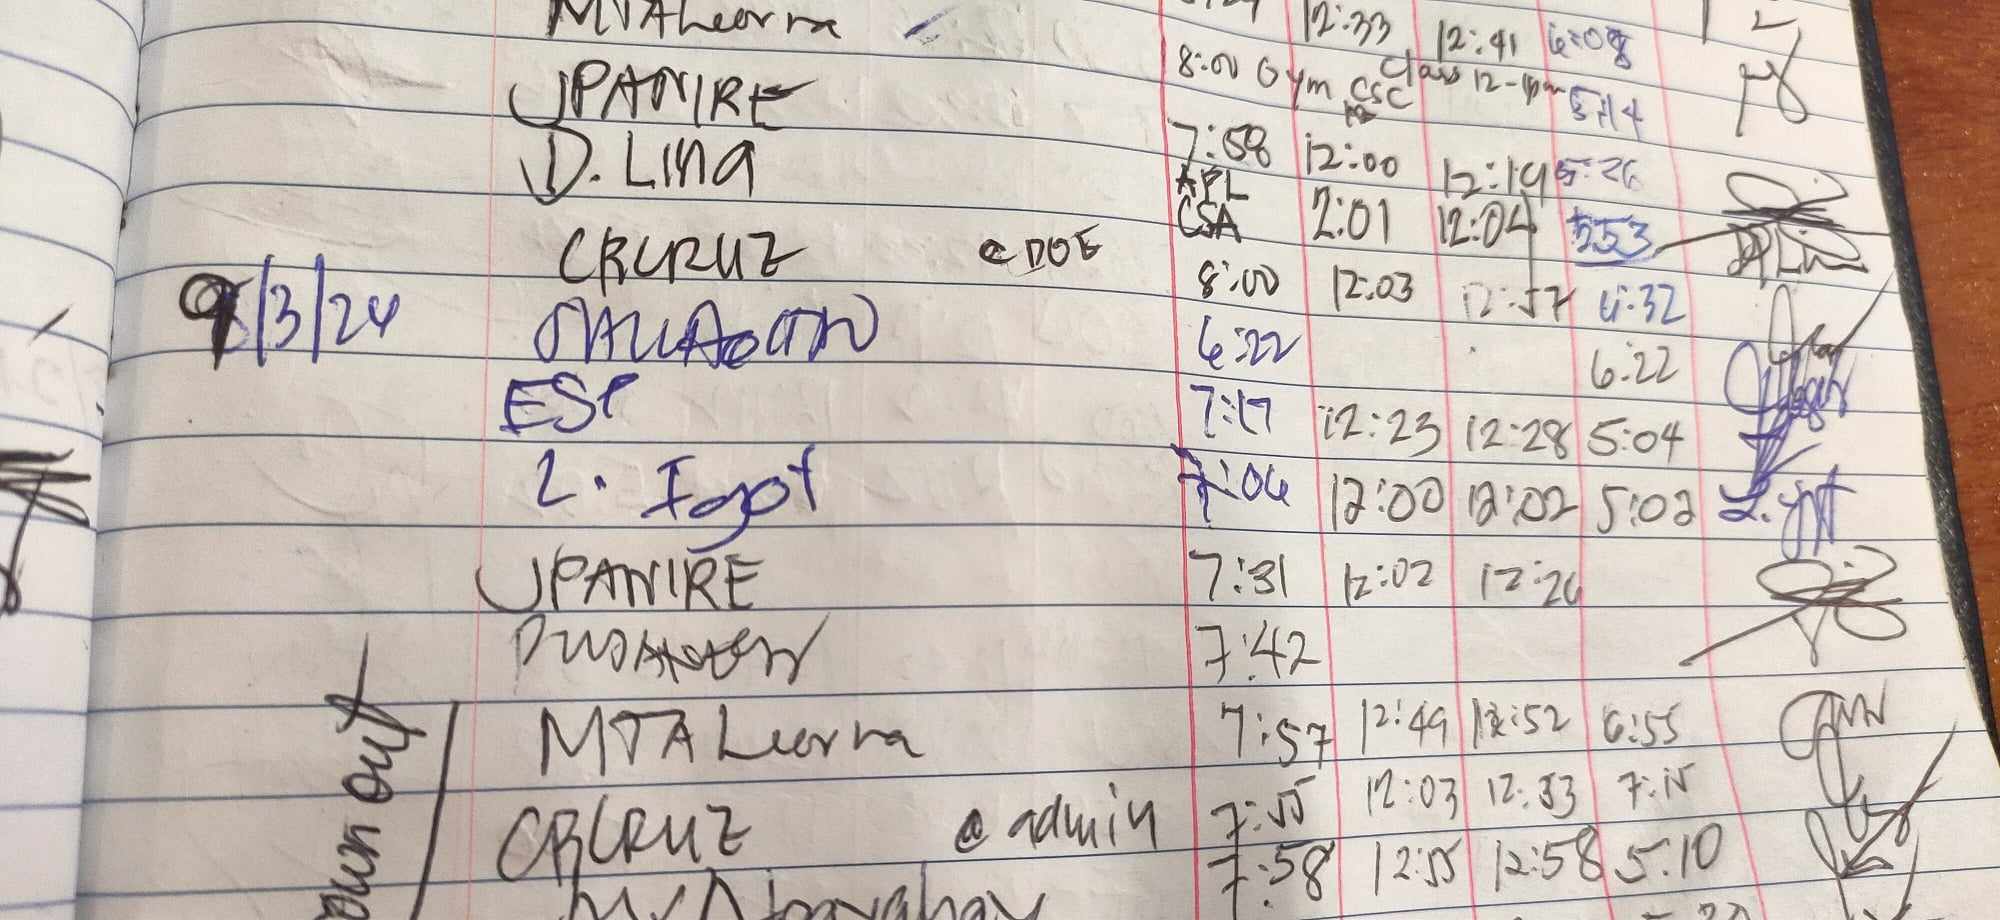 MTALeorna 12:33 12:41 6:08
JPANIRE 8:00 Gym CSC Class 12-1pm 5:14
D. Lina 7:58 12:00 12:19 5:26
APL CSA 2:01 12:04 5:53
CRCRUZ @ DOE 8:00 12:03 12:57 6:32
9/3/24 6:22 6:22
ESP 7:17 12:23 12:28 5:04
L. Igot 7:06 12:00 12:02 5:02 L. Igot
JPANIRE 7:31 12:02 12:26
7:42
MTALeorna 7:57 12:49 12:52 6:55
CRCRUZ @ admin 7:55 12:03 12:33 7:15
7:58 12:55 12:58 5:10
out